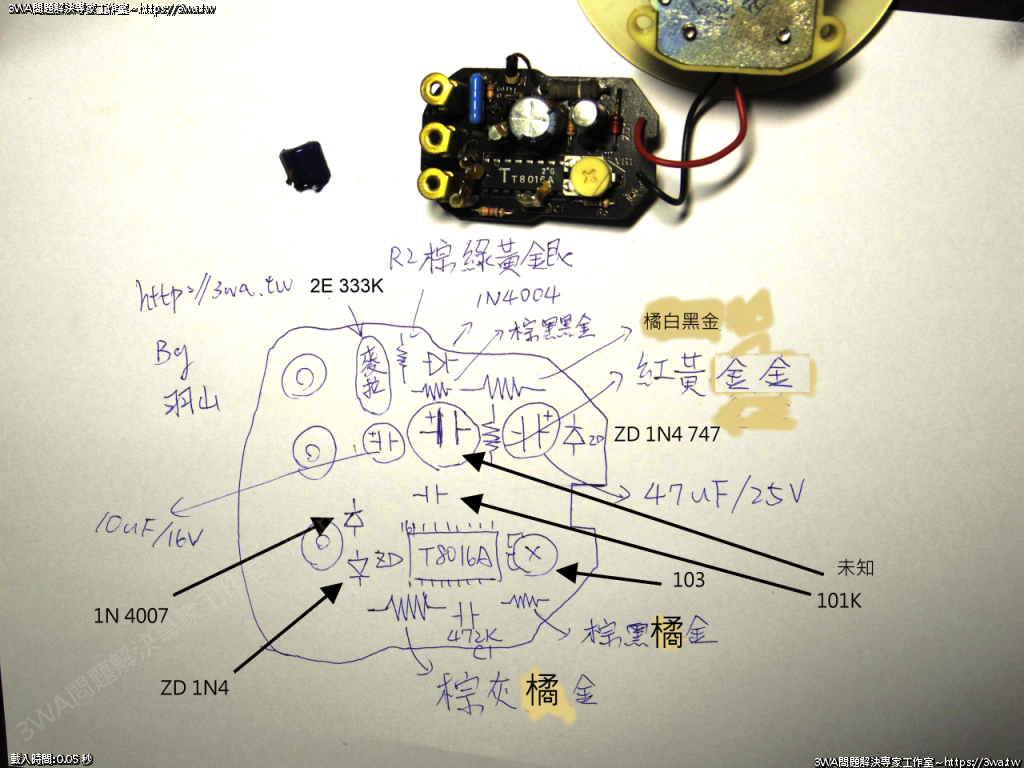 3WA問題解決專家工作室~https://3wa.tw
T T8016A
2*G
R2棕綠黃銀
http://3wa.tw
2E 333K
1N4004
棕黑黑金
橘白黑金
By
羽山
麥拉
紅黃金金
ZD
ZD 1N4 747
47uF/25V
10uF/16V
ZD
T8016A
未知
103
101K
1N 4007
472K
C1
棕黑橘金
ZD 1N4
棕灰橘金
3WA問題解決專家工作室
載入時間:0.05 秒
3WA問題解決專家工作室~https://3wa.tw